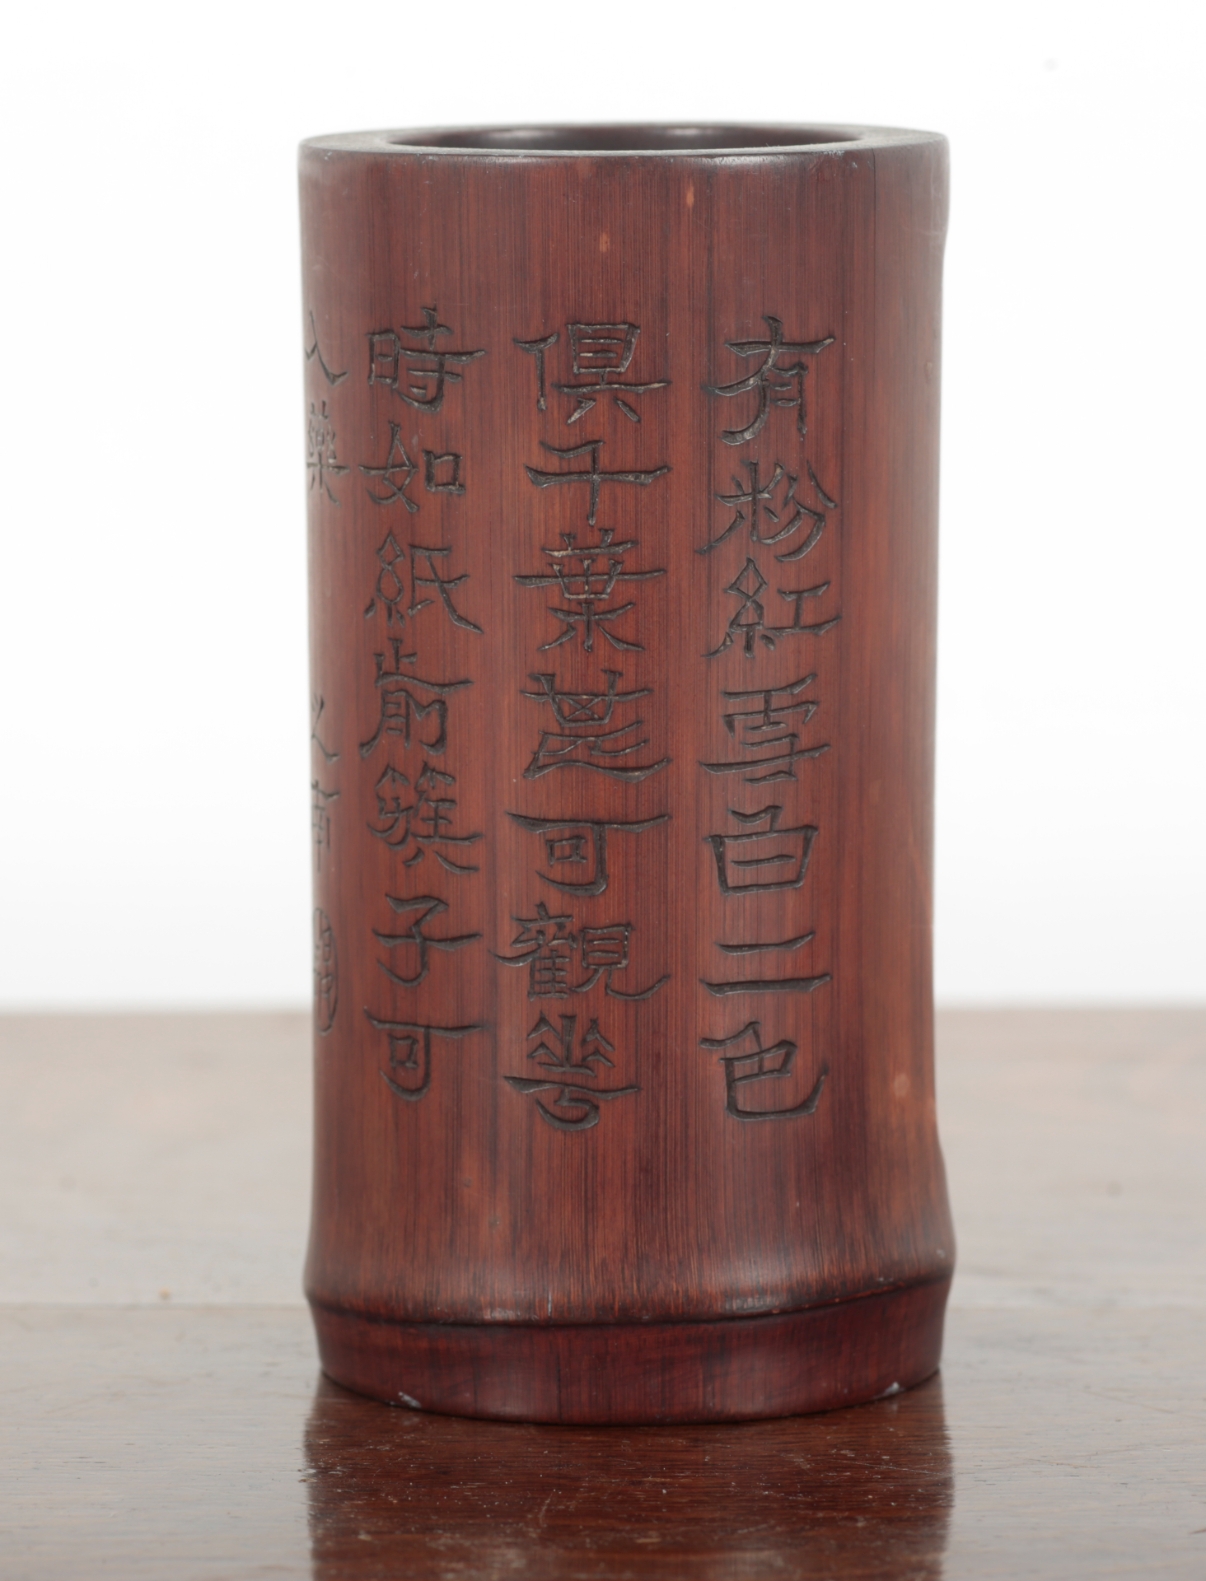 有粉紅雪白二色
俱千葉甚可觀花
時如紙剪簇子可
入藥